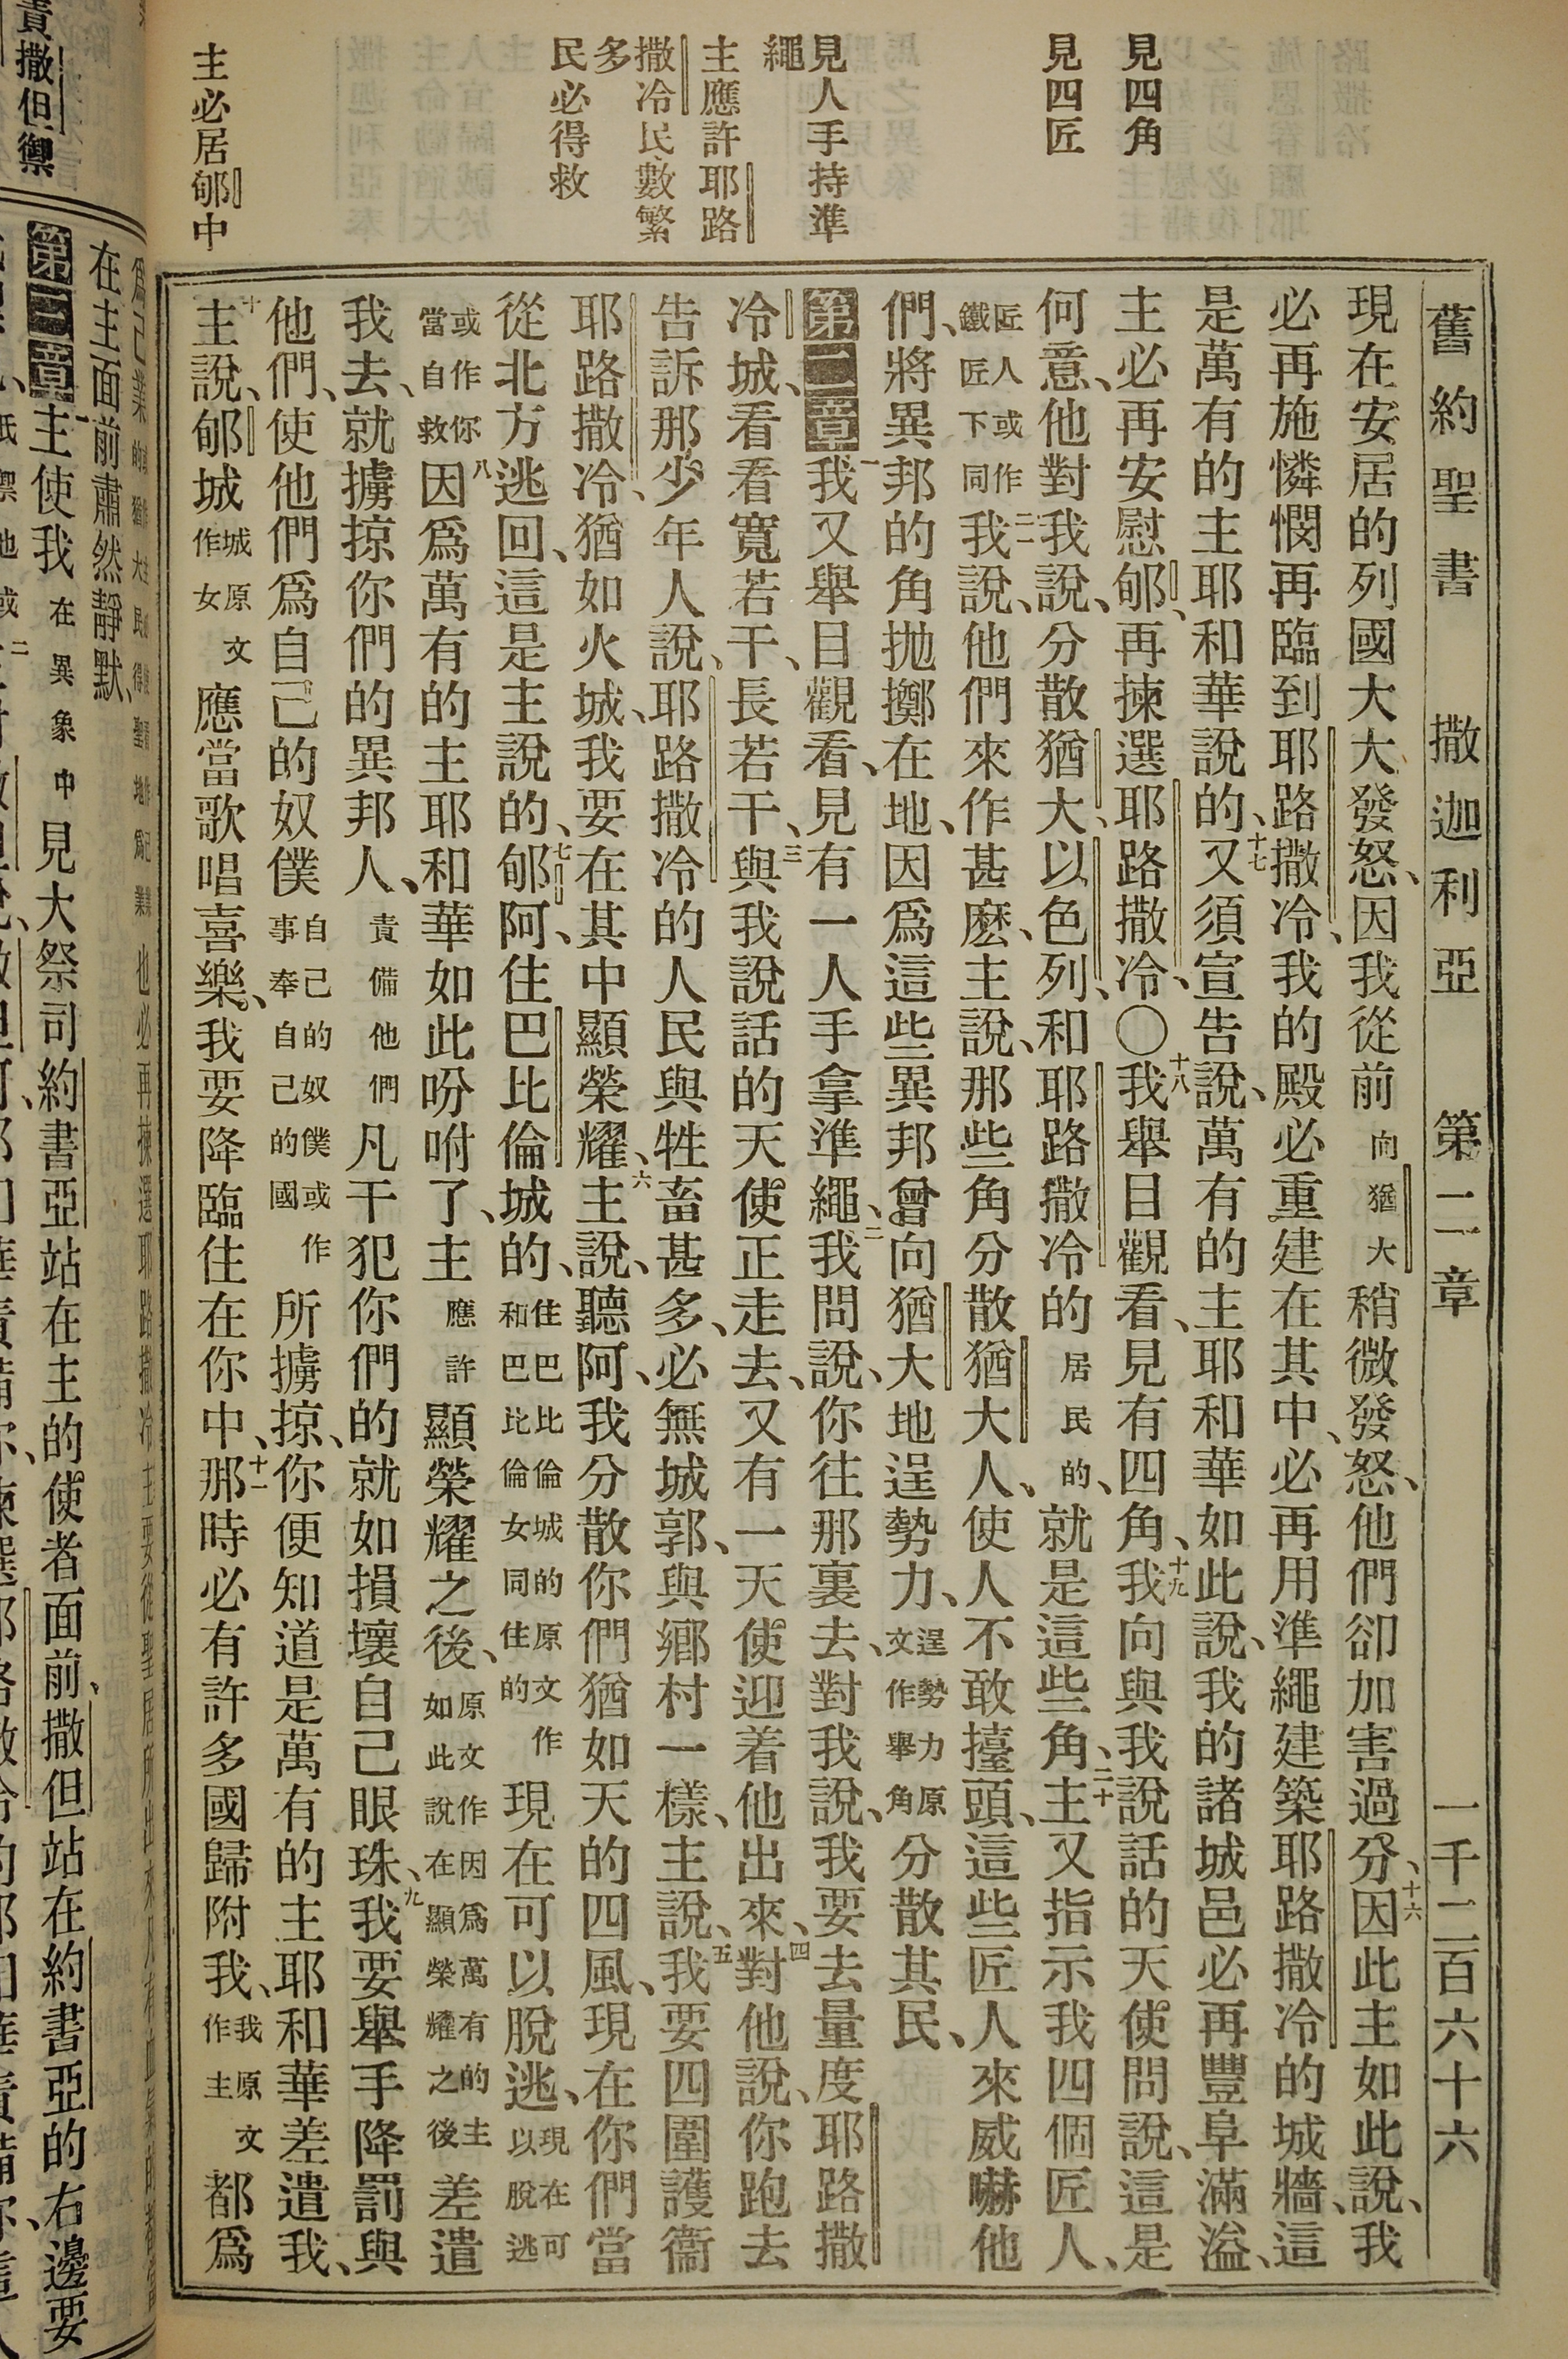 舊約聖書 撒迦利亞 第二章 一千二百六十六
見四角
見四匠
見人手持準
繩
主應許耶路
撒冷民數繁
多
民必得救
主必居郇中
現在安居的列國大大發怒、因我從前向猶大稍微發怒、他們卻加害過分、十六因此主如此說、我
必再施憐憫再臨到耶路撒冷、我的殿必重建在其中、必再用準繩建築耶路撒冷的城牆、這
是萬有的主耶和華說的、十七又須宣告說、萬有的主耶和華如此說、我的諸城邑必再豐阜滿溢、
主必再安慰郇、再揀選耶路撒冷、〇十八我舉目觀看、見有四角、十九我向與我說話的天使問說、這是
何意、他對我說、分散猶大、以色列、和耶路撒冷的居民的、就是這些角、二十主又指示我四個匠人、
匠人或作鐵匠下同二一我說、他們來作甚麽、主說、那些角分散猶大人、使人不敢擡頭、這些匠人來威嚇他
們、將異邦的角拋擲在地、因爲這些異邦曾向猶大地逞勢力、逞勢力原文作舉角分散其民、
第二章一我又舉目觀看、見有一人手拿準繩、二我問說、你往那裏去、對我說、我要去量度耶路撒
冷城、看看寬若干、長若干、三與我說話的天使正走去、又有一天使迎着他出來、四對他說、你跑去
告訴那少年人說、耶路撒冷的人民與牲畜甚多、必無城郭、與鄉村一樣、主說、五我要四圍護衞
耶路撒冷、猶如火城、我要在其中顯榮耀、六主說、聽阿、我分散你們猶如天的四風、現在你們當
從北方逃回、這是主說的、七郇阿、住巴比倫城的、住巴比倫城的原文作和巴比倫女同住的現在可以脫逃、現在可以脫逃
或作你當自救八因爲萬有的主耶和華如此吩咐了、主應許顯榮耀之後、原文作因爲萬有的主如此說在顯榮耀之後差遣
我去、就擄掠你們的異邦人、責備他們凡干犯你們的就如損壞自己眼珠、九我要舉手降罰與
他們、使他們爲自己的奴僕自己的奴僕或作事奉自己的國所擄掠、你便知道是萬有的主耶和華差遣我、
十主說、郇城城原文作女應當歌唱喜樂、我要降臨住在你中、十一那時必有許多國歸附我、我原文作主都爲
在主面前肅然靜默、
第三章一主使我在異象中見大祭司約書亞站在主的使者面前、撒但站在約書亞的右邊要
責撒但禦